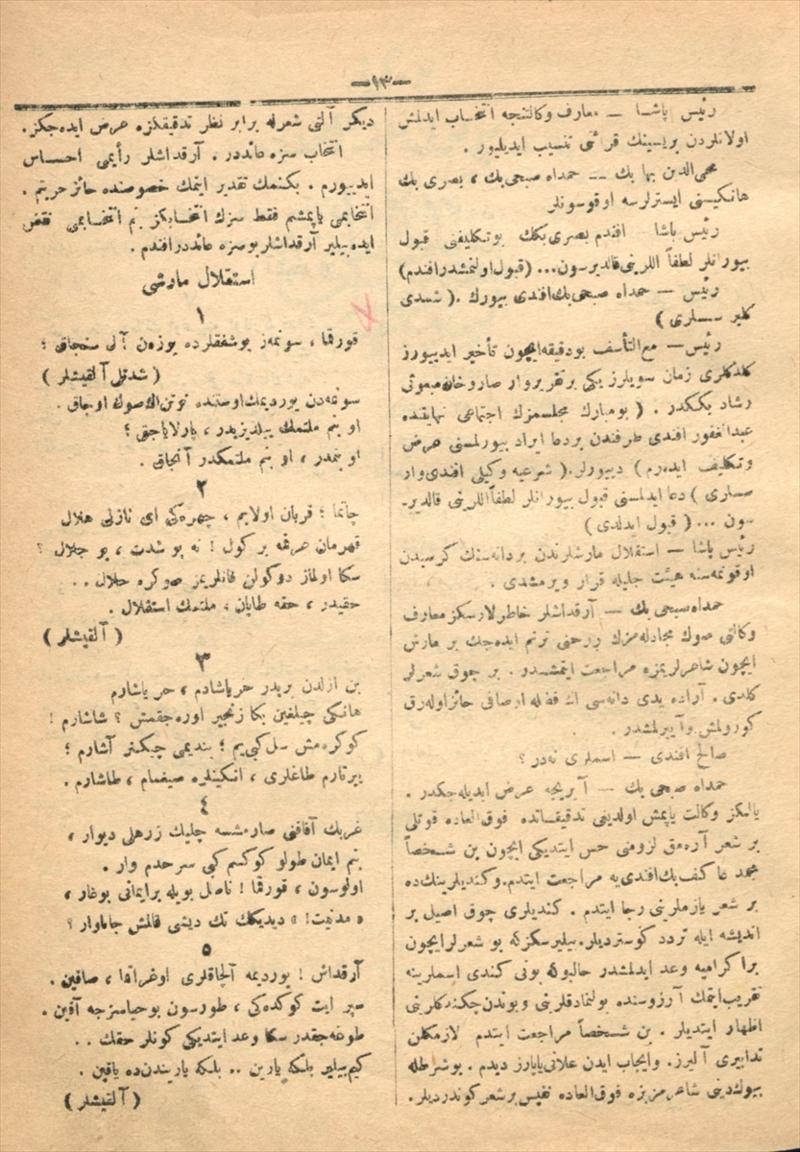 —٩٣—
رئیس پاشا — معارف وكالتنجه انتخـاب ایدلمش
اولانلردن بریسینك قرائتی تنسیب ایدیلیور .
محی‌الدین بها بك — حمداه صبحی بك ، بصری بك
هانكیسنی ایسترلرسه اوقوسونلر
رئیس پاشا — افندم بصری بكك بوتكلیفنی قبول
بیورانلر لطفاً اللرینی قالدیرسون... (قبول اولنمشدر افندم)
رئیس — حمداه صبحی بك افندی بیورك . ( شمدی
كلیر سسلری )
رئیس — مع التأسف بودقیقه ایچون تأخیر ایدییورز
كلدكلری زمان سویلرز یكی بر تقریر وار صاروخان مبعوثی
رشاد بككدر . ( بو مبارك مجلسمزك اجتماعی نهایتنده
عبدالغفور افندی طرفندن بر دعا ایراد بیورلمسنی عرض
وتكلیف ایده‌رم ) دییورلر. ( شرعیه وكیلی افندی وار
سسلری ) دعا ایدلمسنی قبول بیورانلر لطفاً اللرینی قالدیر-
سون ... ( قبول ایدلدی )
رئیس پاشا — استقلال مارشلرندن بردانه‌سنك كرسیدن
اوقونمه‌سنه هیئت جلیله قرار ویرمشدی .
حمداه صبحی بك — آرقداشلر خاطرلارسكز معارف
وكالتی صوك مجادله‌مزك روحنی ترنم ایده‌جك بر مارش
ایچون شاعرلریمزه مراجعت ایتمشدر . بر چوق شعرلر
كلدی . آراده یدی دانه‌سی اك فضله اوصافی حائز اوله‌رق
كورولمش وآییرلمشدر .
صالح افندی — اسملری نه‌در ؟
حمداه صبحی بك — آیریجه عرض ایدیله‌جكدر .
یالكز وكالت یاپمش اولدیغی تدقیقاتده فوق العاده قوتلی
بر شعر آرامق لزومنی حس ایتدیكی ایچون بن شـخصاً
محمد عاكف بك افندی‌یه مراجعت ایتدم. وكندیلرینك ده
بر شعر یازملرینی رجا ایتدم . كندیلری چوق اصیل بر
اندیشه ایله تردد كوستردیلر. بیلیرسكزكه بو شعرلر ایچون
بر اكرامیه وعد ایدلمشدر حالبوكه بونی كندی اسملرینه
تقریب ایتمك آرزوسنده بولنمادقلرینی و بوندن چكندكلرینی
اظهار ایتدیلر . بن شـخصاً مراجعت ایتدم لازمكلن
تدابیری آلیرز. وایجاب ایدن علانی یاپارز دیدم . بوشرطله
بیوك دینی شاعرمز بزه فوق العاده نفیس بر شعر كوندردیلر.
دیكر آلتی شعرله برابر نظر تدقیقكزه عرض ایده‌جكز.
انتخاب سزه عائددر . آرقداشلر رأیمی احسـاس
ایدییورم . بكنمك تقدیر ایتمك خصوصنده حائز حریتم .
انتخابمی یاپمشم فقط سزك انتخابكز بنم انتخابمی نقض
ایده بیلیر آرقداشلر بو سزه عائددر افندم .
استقلال مارشی
١
قورقما ، سونمه‌ز بو شفقلرده یوزه‌ن آلی سنجاق ؛
( شدتلی آلقیشلر )
سونمه‌دن یوردیمك اوستنده توتن اك صوك اوجاق .
او بنم ملتمك ییلدیزیدر ، پارلایاجق ؛
او بنمدر ، او بنم ملتمكدر آنجاق .
٢
چاتما ؛ قربان اولایم ، چهره‌كی ای نازلی هلال
قهرمان عرقمه بر كول ! نه بو شدت ، بو جلال ؟
سكا اولماز دوكولن قانلریمز صوكره حلال ..
حقیدر ، حقه طاپان ، ملتمك استقلال .
( آلقیشلر )
٣
بن ازلدن بریدر حر یاشادم ، حر یاشارم
هانكی چیلغین بكا زنجیر اوره‌جقمش ؟ شاشارم !
كوكره‌مش سل كبی‌یم ؛ بندیمی چیكنر آشارم ؛
ییرتارم طاغلری ، انكینلره صیغمام ، طاشارم .
٤
غربك آفاقنی صارمشسه چلیك زرهلی دیوار ،
بنم ایمان طولو كوكسم كبی سرحدم وار .
اولوسون ، قورقما ! ناصل بویله بر ایمانی بوغار ،
« مدنیت! » دیدیكك تك دیشی قالمش جاناوار ؟
٥
آرقداش ! یوردیمه آلچاقلری اوغراتما ، صاقین .
سپر ایت كوكده‌كی ، طورسون بوحیاسزجه آقین .
طوغه‌جقدر سكا وعد ایتدیكی كونلر حقك ..
كیم بیلیر بلكه یارین .. بلكه یاریندن ده یاقین .
( آلقیشلر )